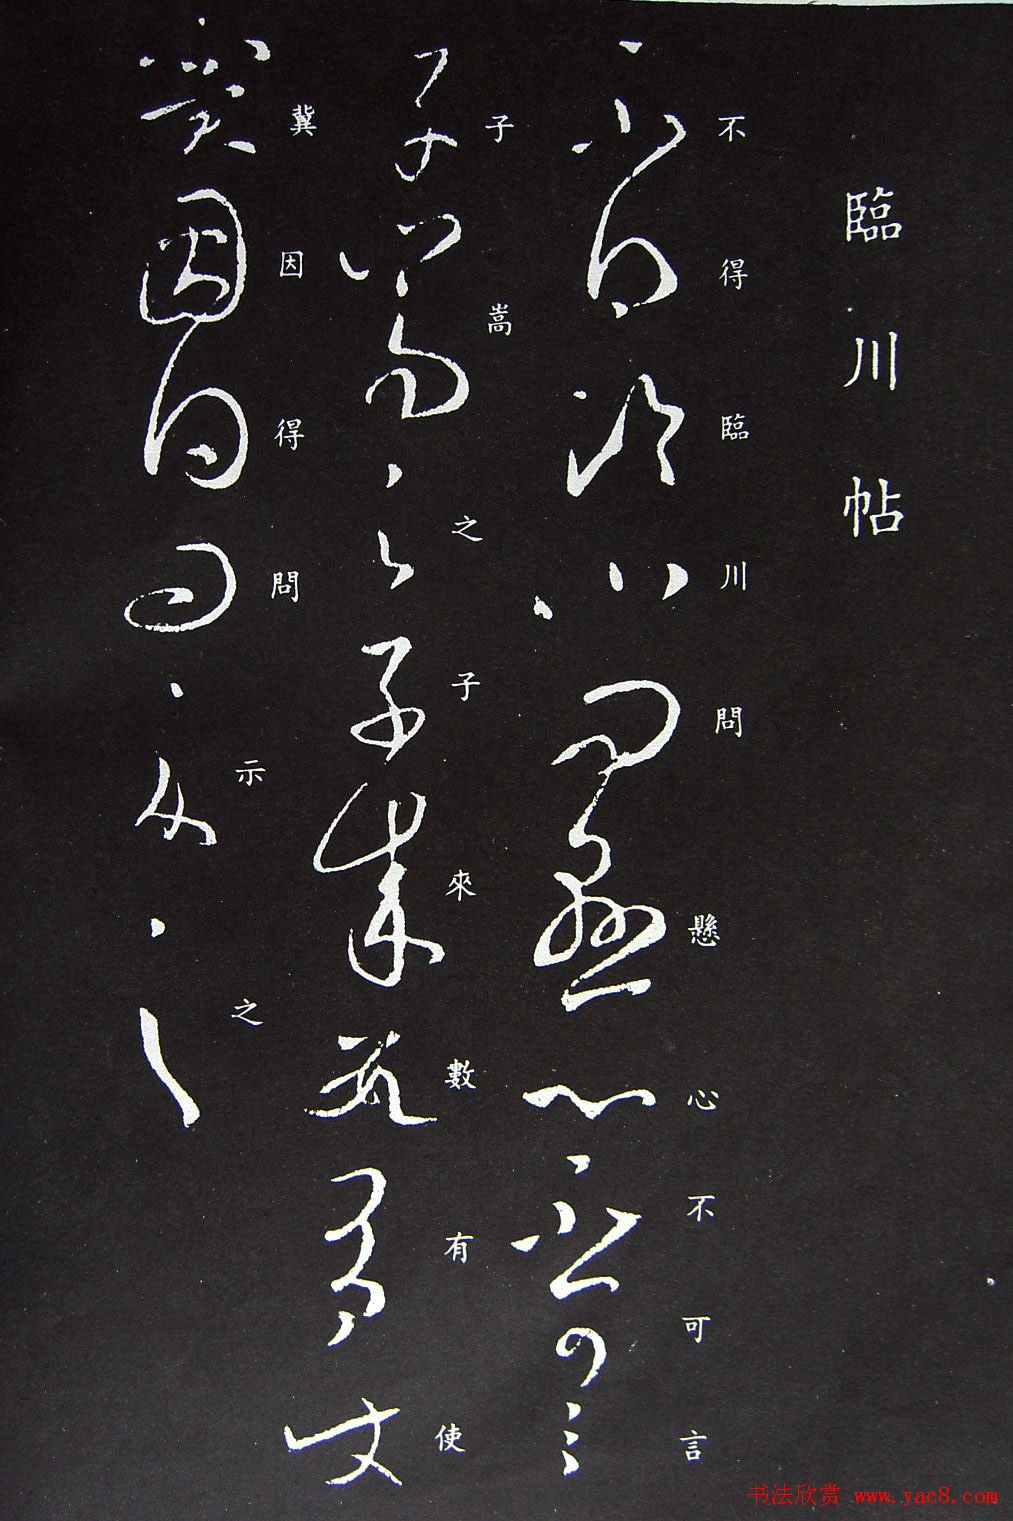 臨川帖
不得臨川問懸心不可言
子嵩之子來數有使
冀因得問示之
书法欣赏 www.yac8.com